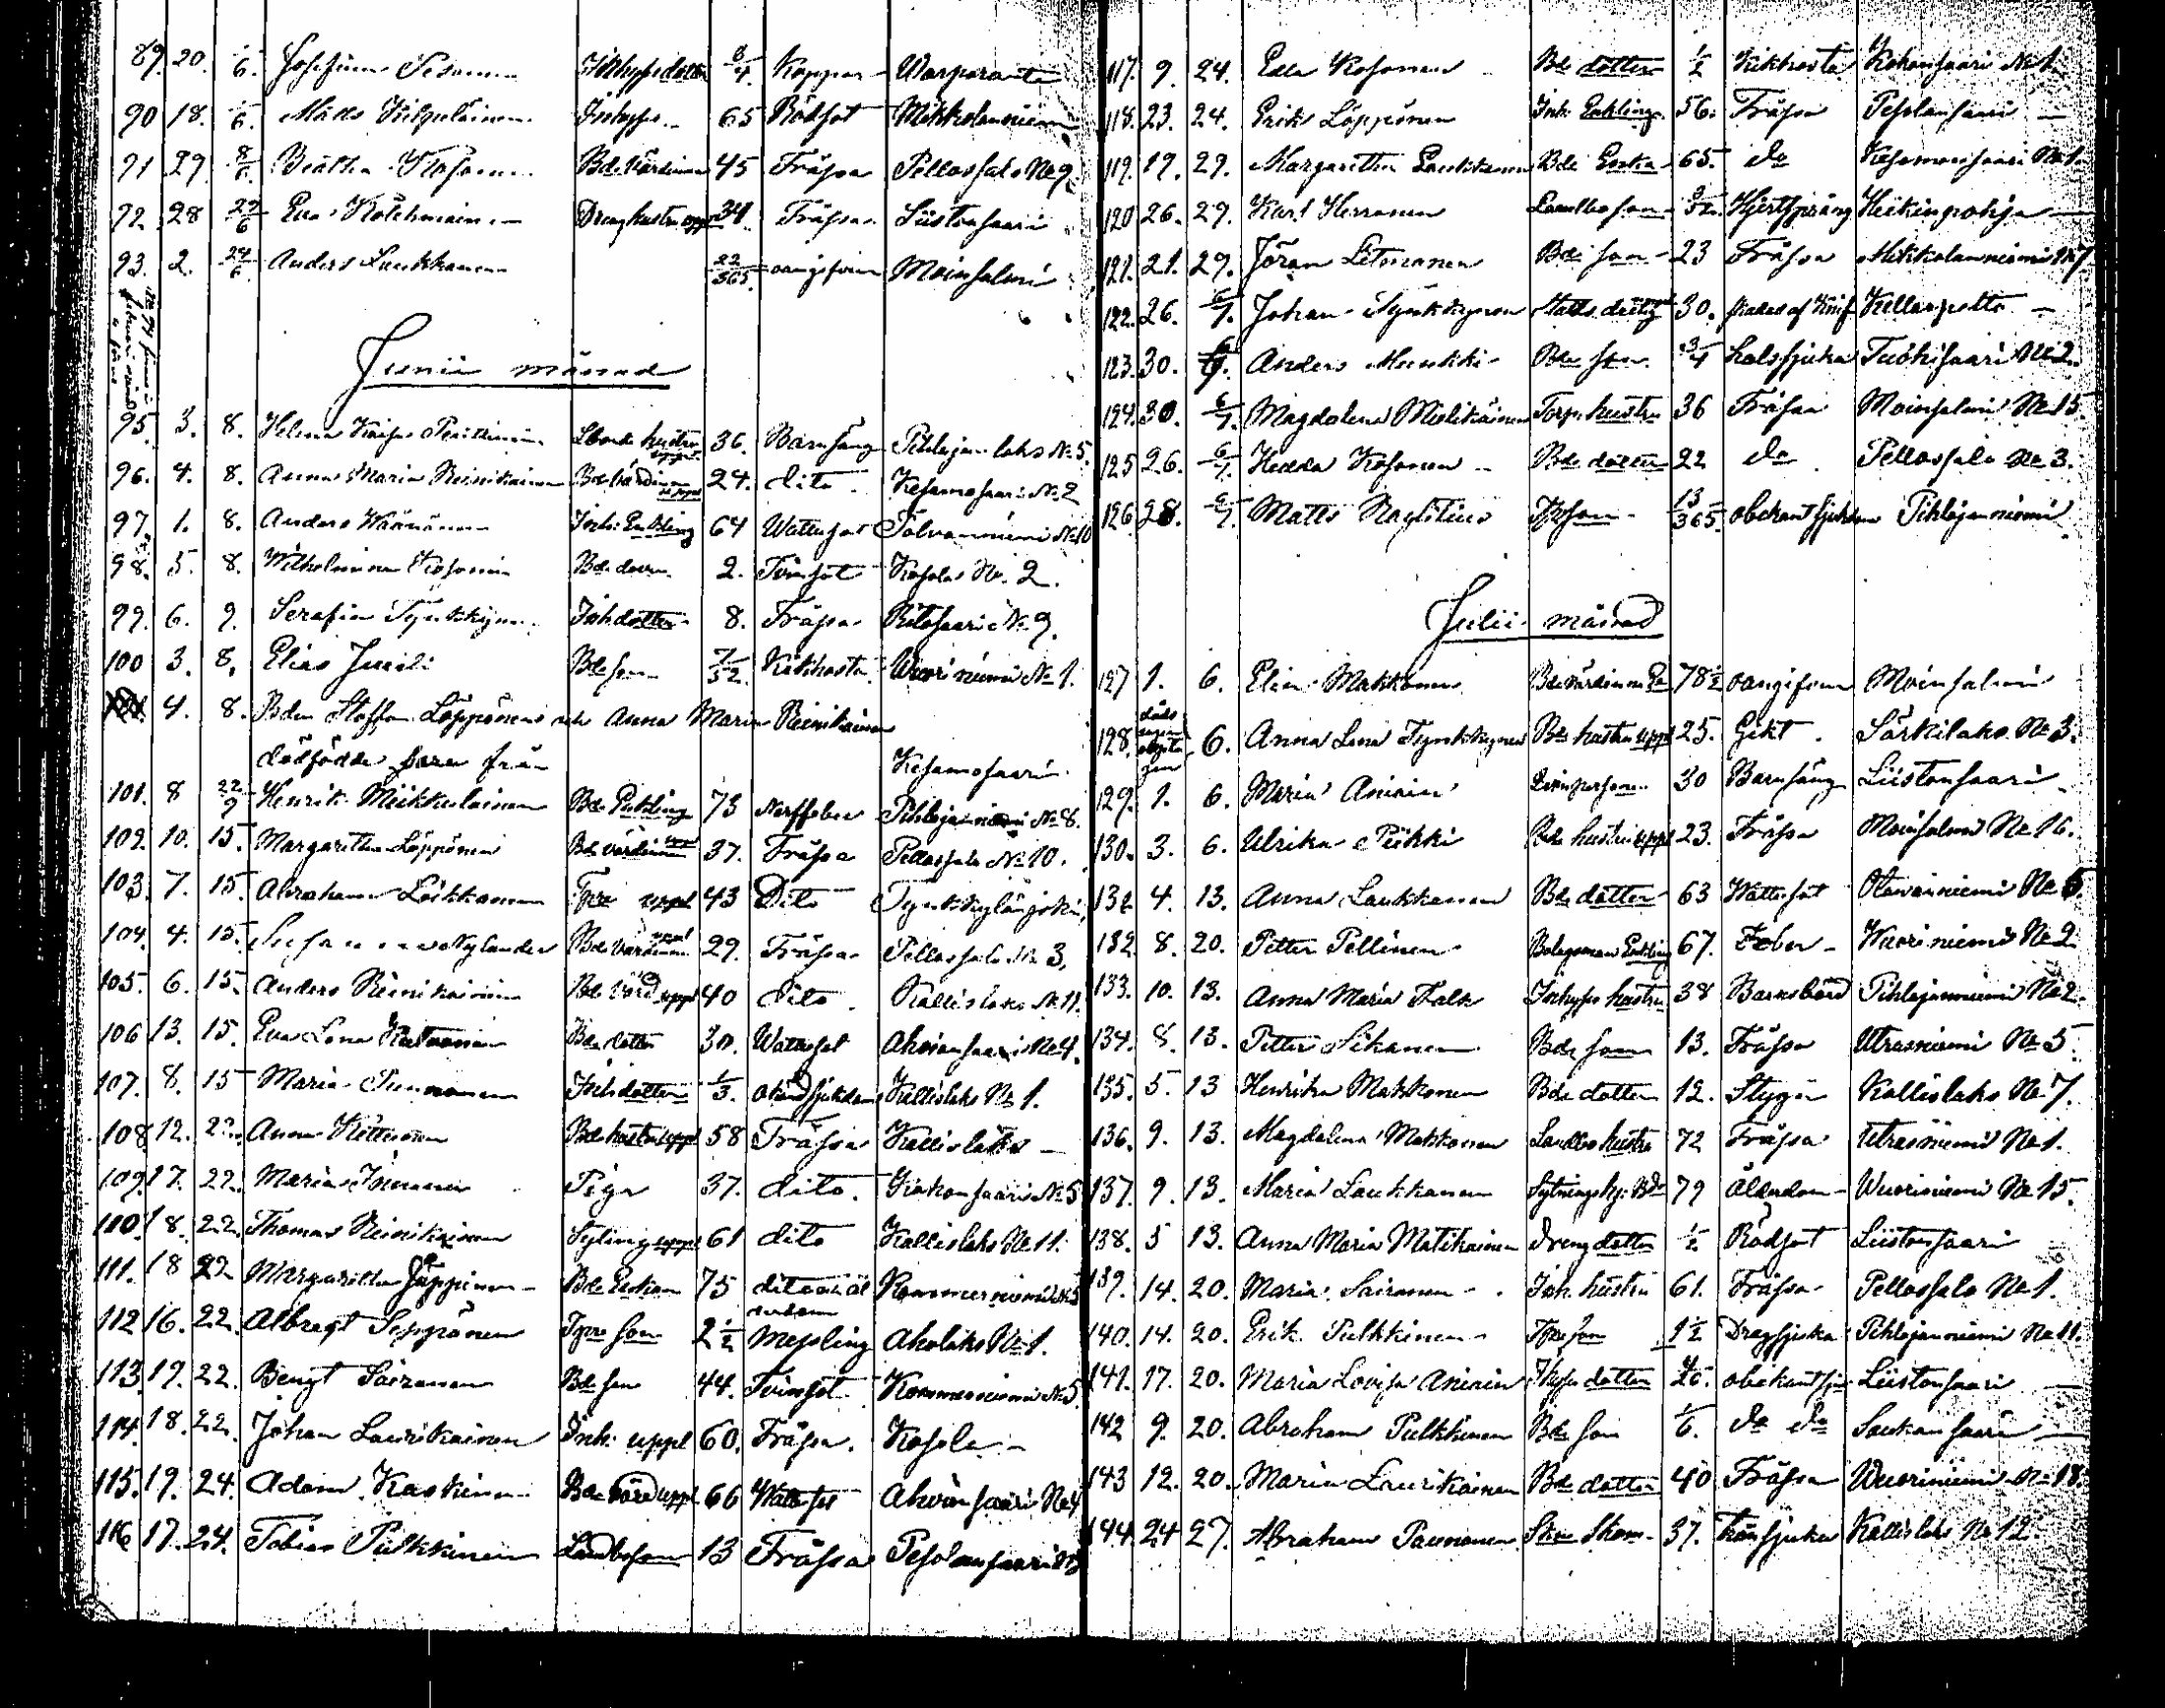 89. 20. 1/6. Josefina Pesonen Inhyses dotter 8/4. Koppor Warparanta
90 18. 1/6. Matts Kilpeläinen Inhyses 65 Rödsot Mikkolanniemi
91 29. 8/6. Beatha Kosonen Bde värdinna 45 Frässa Pellossalo No 9.
92 28 22/6 Eva Kolehmainen Dreng hustru uppl 34. Frässa Liistonsaari
93. 2. 24/6 Anders Laukkanen 22/365 oangifven Moinsalmi
Junii månad
95. 3. 8. Helena Kaisa Penttinen Lbonde hustru 36. Barnsäng Pihlajanlaks No 5.
96. 4. 8. Anna Maria Reinikainen Bde värdinna 24. dito Kesamosaari No 2
97. 1. 8. Anders Wäänänen Inh. Enkling 64 Wattusot Tolvanniemi No 10
98. 5. 8. Wilhelmina Kosonen Bde dotter 2. Tvinsot Kosola No 2.
99. 6. 9. Serafia Tynkkynen Inh dotter 8. Frässa Ritosaari No 9.
100 3. 8. Elias Juuti Bde son 7/52. Kikhosta Wuoriniemi No 1.
4. 8. Bden Staffan Löppönens och Anna Maria Reinikainen
dödfödde son från Kesamosaari
101. 8 22/9 Henrik Miikkulainen Bde Enkling 73 Nerffeber Pihlajaniemi No 8.
102. 10. 15. Margaretha Löppönen Bde värdinna uppl 37. Frässa Pellossalo No 10.
103. 7. 15. Abraham Loikkanen Tpre uppl 43 Dito Tynkkylänjoki
104. 4. 15. Nylander Bde värdinna uppl 29. Frässa Pellossalo No 3.
105. 6. 15. Anders Reinikainen Bde värd uppl 40 dito. Kallislaks No 11.
106 13. 15. Eva Lena Bde dotter 30. Wattusot Ahvionsaari No 4.
107. 8. 15 Maria Punnonen Inh dotter 1/3. okänd sjukdom Kallislaks No 1.
108. 12. 22. Anna Kettunen Bde hustru uppl 58 Frässa Kallislaks —
109. 17. 22. Maria Immonen Piga 37. dito. Kokonsaari No 5
110. 18. 22. Thomas Reinikainen Sytning uppl 61 dito Kallislaks No 11.
111. 18 22 Margaretha Jäppinen Bde Enka 75 dito och ålderdom Kommerniemi No 5
112 16. 22. Albregt Seppänen Tpre son 2 1/2 Messling Aholaks No 1.
113. 19. 22. Bengt Sairanen Bde son 44. Tvinsot Kommerniemi No 5.
114. 18. 22. Johan Laurikainen Inh. uppl 60. Frässa. Kosola —
115. 19. 24. Adam Kaskinen Bde värd uppl 66 Wattusot Ahvionsaari No 4
116 17. 24. Tobias Pulkkinen Landboson 13 Frässa Pesolansaari No 3
117. 9. 24. Edla Kosonen Bde dotter 1/2 Kikhosta Kokonsaari No 1.
118. 23. 24. Erik Löppönen Inh. Enkling 56. Frässa Pesolansaari —
119. 19. 29. Margaretha Laukkanen Bde Enka 65. do Kesamonsaari No 1.
120 26. 29. Karl Herranen Landboson 9/52. Hjertsprång Heikinpohja —
121. 21. 29. Jöran Litmanen Bde son 23 Frässa Mikkolanniemi No 7
122. 26. 6/7. Johan Tynkkynen Statts dreng 30. skadad af Knif Kellarpelto —
123. 30. 6/7. Anders Munkki Bde son 3/4 halssjuka Tuohisaari No 2.
124. 30. 6/7. Magdalena Mielikäinen Torp. hustru 36 Frässa Moinsalmi No 15.
125 26. 6/7. Hedda Kosonen Bde dotter 22 do Pellossalo No 3.
126 28. 6/7. Matts Naglitius Tprson 13/365. obekant sjukdom Pihlajanniemi
Julii månad
127 1. 6. Elin Makkonen Bde värdinna 78 1/2 oangifven Moinsalmi
128. 6. Anna Lena Tynkkynen Bde hustru uppl 25. Gikt. Särkilaks No 3.
129. 1. 6. Maria Aniain 30 Barnsäng Liistonsaari
130. 3. 6. Ulrika Piikki Bde hustru uppl 23. Frässa Moinsalmi No 16.
132 4. 13. Anna Laukkanen Bde dotter 63 Wattusot Otavaniemi No 5.
132. 8. 20. Petter Pellinen Bolagsman Enkling 67. Feber Wuoriniemi No 2.
133. 10. 13. Anna Maria Falk Inhyses hustru 38 Barnsbörd Pihlajanniemi No 2.
134. 8. 13. Petter Sikanen Bde son 13. Frässa Utrasniemi No 5
135. 5. 13 Henrika Makkonen Bde dotter 12. Styng Kallislaks No 7.
136. 9. 13. Magdalena Makkonen Landbo hustru 72 Frässa Utrasniemi No 1.
137. 9. 13. Maria Laukkanen Sytningshj. Bde 79 Ålderdom Wuoriniemi No 15.
138. 5 13. Anna Maria Matikainen Dreng dotter 1/2 Rödsot Liistonsaari
139. 14. 20. Maria Sairanen Inh. hustru 61. Frässa Pellossalo No 1.
140. 14. 20. Erik Pulkkinen Tpreson 1 1/2 Dragsjuka Pihlajanniemi No 11.
141. 17. 20. Maria Lovisa Aniain Ihyses dotter obekant sju Liistonsaari —
142 9. 20. Abraham Pulkkinen Bde son 1/6. do do Saukonsaari —
143 12. 20. Maria Laurikainen Bde dotter 40 Frässa Wuoriniemi No 18.
144. 24 27. Abraham Paunonen 37. Kallislaks No 12